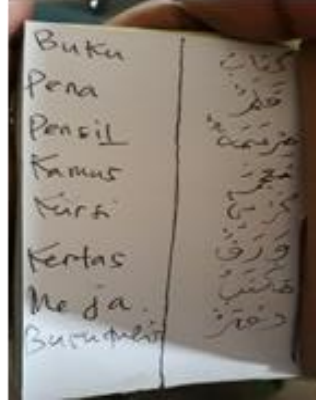 Buku كتاب
Pena قلم
Pensil
Kamus معجم
Kursi كرسي
Kertas ورق
Meja مكتب
Buku tulis دفتر